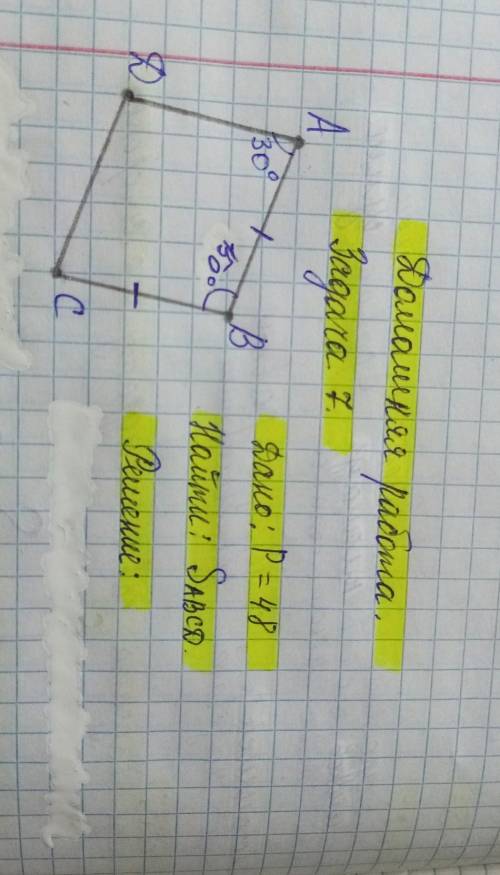 Домашняя работа.
Задача 7.
Дано: P = 48
Найти: SABCD.
Решение:
A
30°
B
50°
C
D